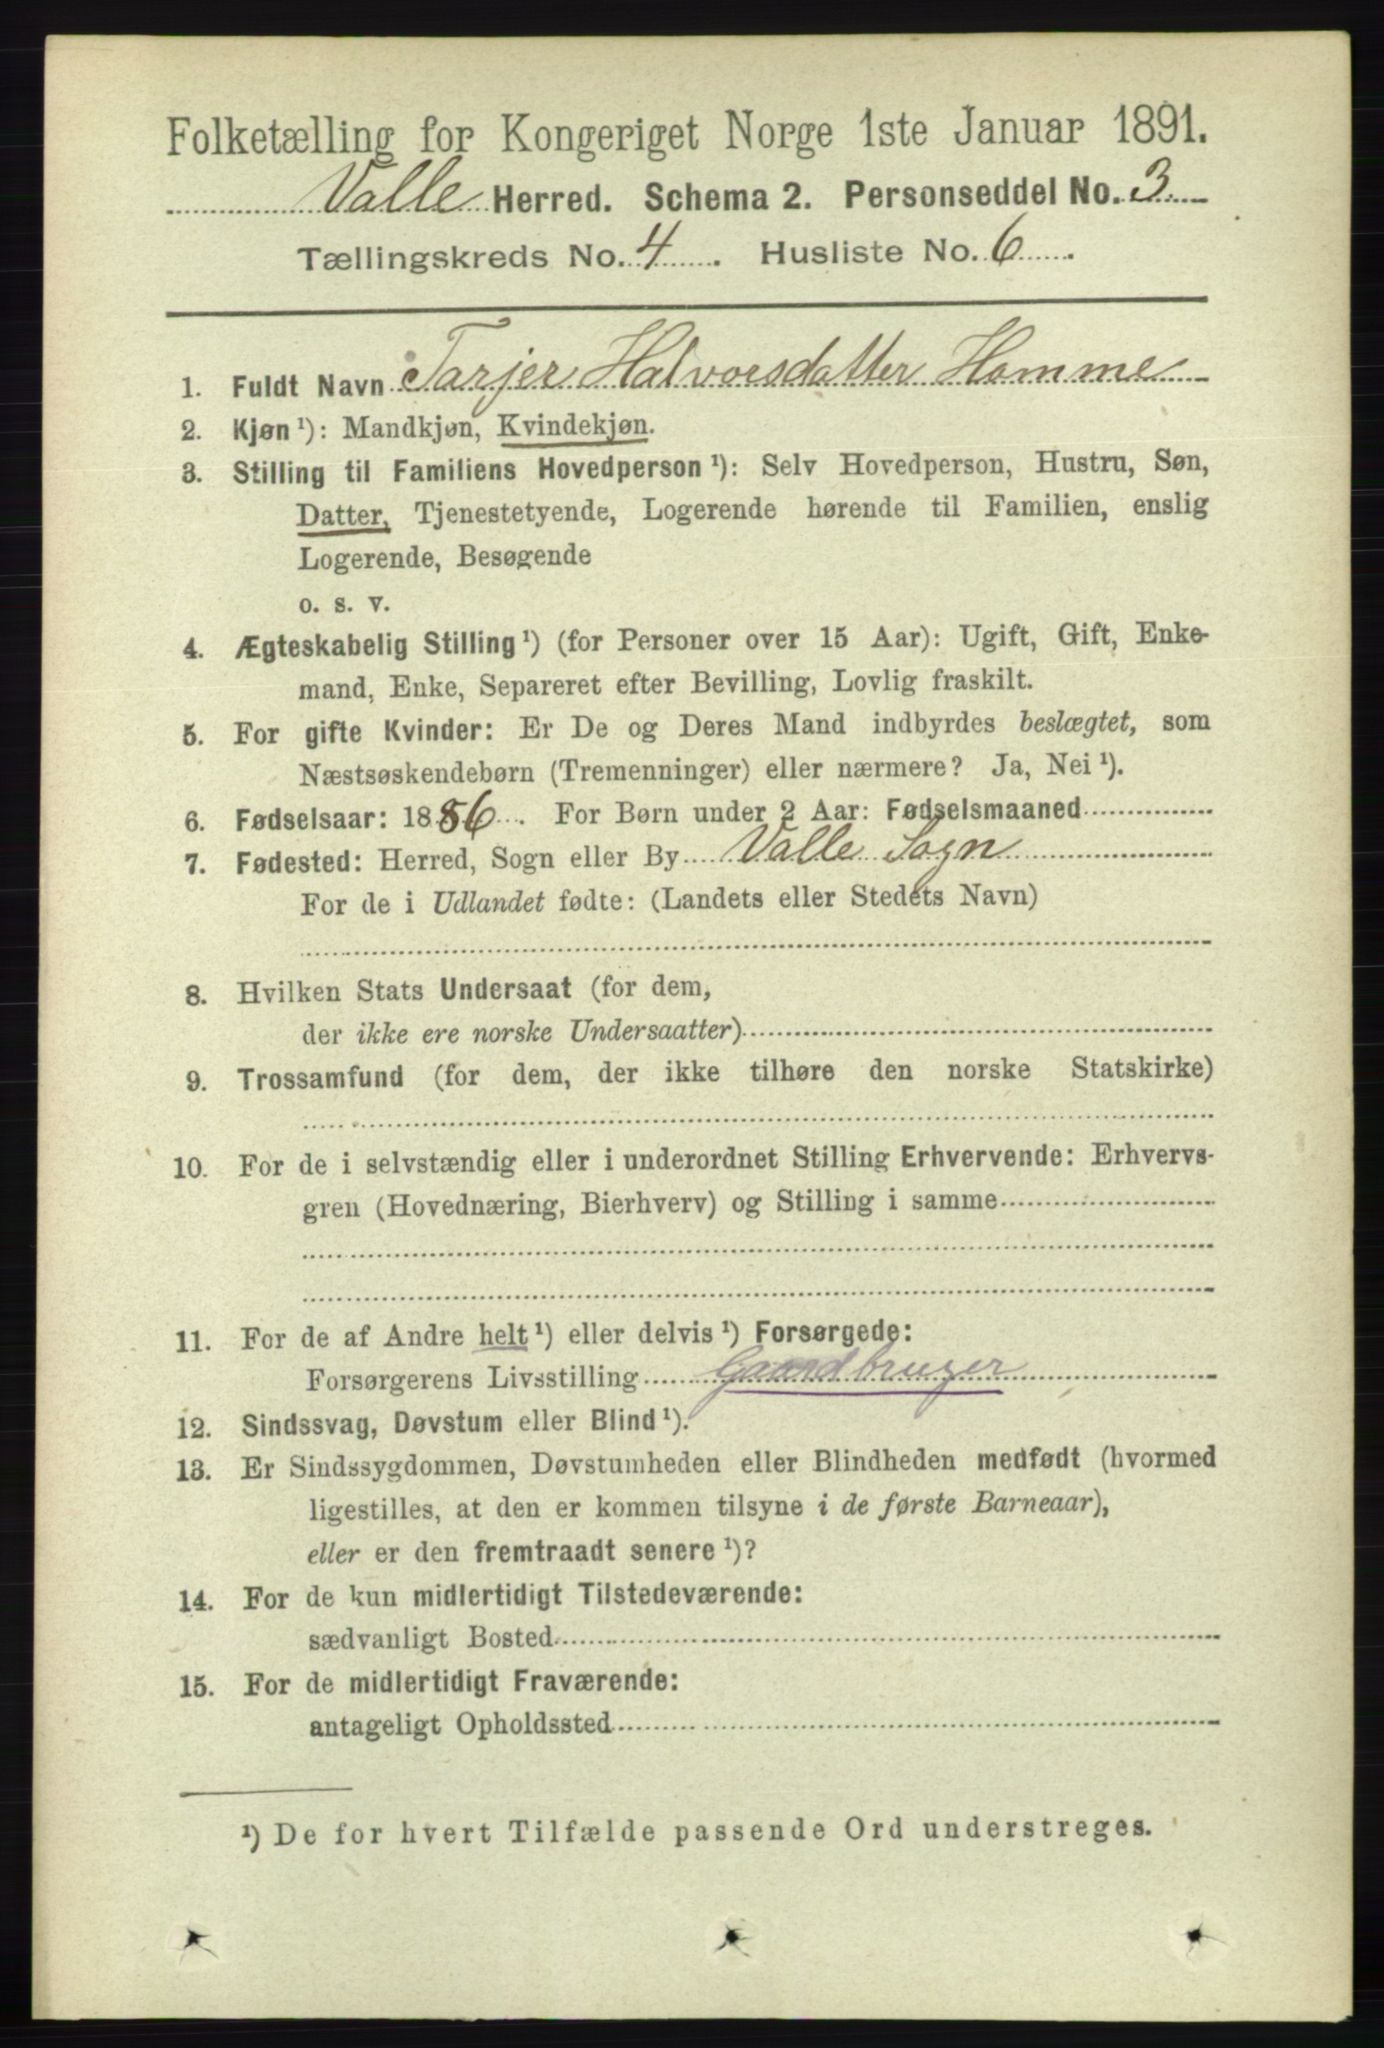 Folketælling for Kongeriget Norge 1ste Januar 1891.
Valle Herred. Schema 2. Personseddel No. 3
Tællingskreds No. 4. Husliste No. 6.
1. Fuldt Navn Tarjer Halvorsdatter Homme
2. Kjøn¹): Mandkjøn, Kvindekjøn.
3. Stilling til Familiens Hovedperson¹): Selv Hovedperson, Hustru, Søn,
Datter, Tjenestetyende, Logerende hørende til Familien, enslig
Logerende, Besøgende
o. s. v.
4. Ægteskabelig Stilling¹) (for Personer over 15 Aar): Ugift, Gift, Enke-
mand, Enke, Separeret efter Bevilling, Lovlig fraskilt.
5. For gifte Kvinder: Er De og Deres Mand indbyrdes beslægtet, som
Næstsøskendebørn (Tremenninger) eller nærmere? Ja, Nei¹).
6. Fødselsaar: 1886. For Børn under 2 Aar: Fødselsmaaned
7. Fødested: Herred, Sogn eller By Valle Sogn
For de i Udlandet fødte: (Landets eller Stedets Navn)
8. Hvilken Stats Undersaat (for dem,
der ikke ere norske Undersaatter)
9. Trossamfund (for dem, der ikke tilhøre den norske Statskirke)
10. For de i selvstændig eller i underordnet Stilling Erhvervende: Erhvervs-
gren (Hovednæring, Bierhverv) og Stilling i samme
11. For de af Andre helt¹) eller delvis¹) Forsørgede:
Forsørgerens Livsstilling Gaardbruger
12. Sindssvag, Døvstum eller Blind¹).
13. Er Sindssygdommen, Døvstumheden eller Blindheden medfødt (hvormed
ligestilles, at den er kommen tilsyne i de første Barneaar),
eller er den fremtraadt senere¹)?
14. For de kun midlertidigt Tilstedeværende:
sædvanligt Bosted
15. For de midlertidigt Fraværende:
antageligt Opholdssted
¹) De for hvert Tilfælde passende Ord understreges.